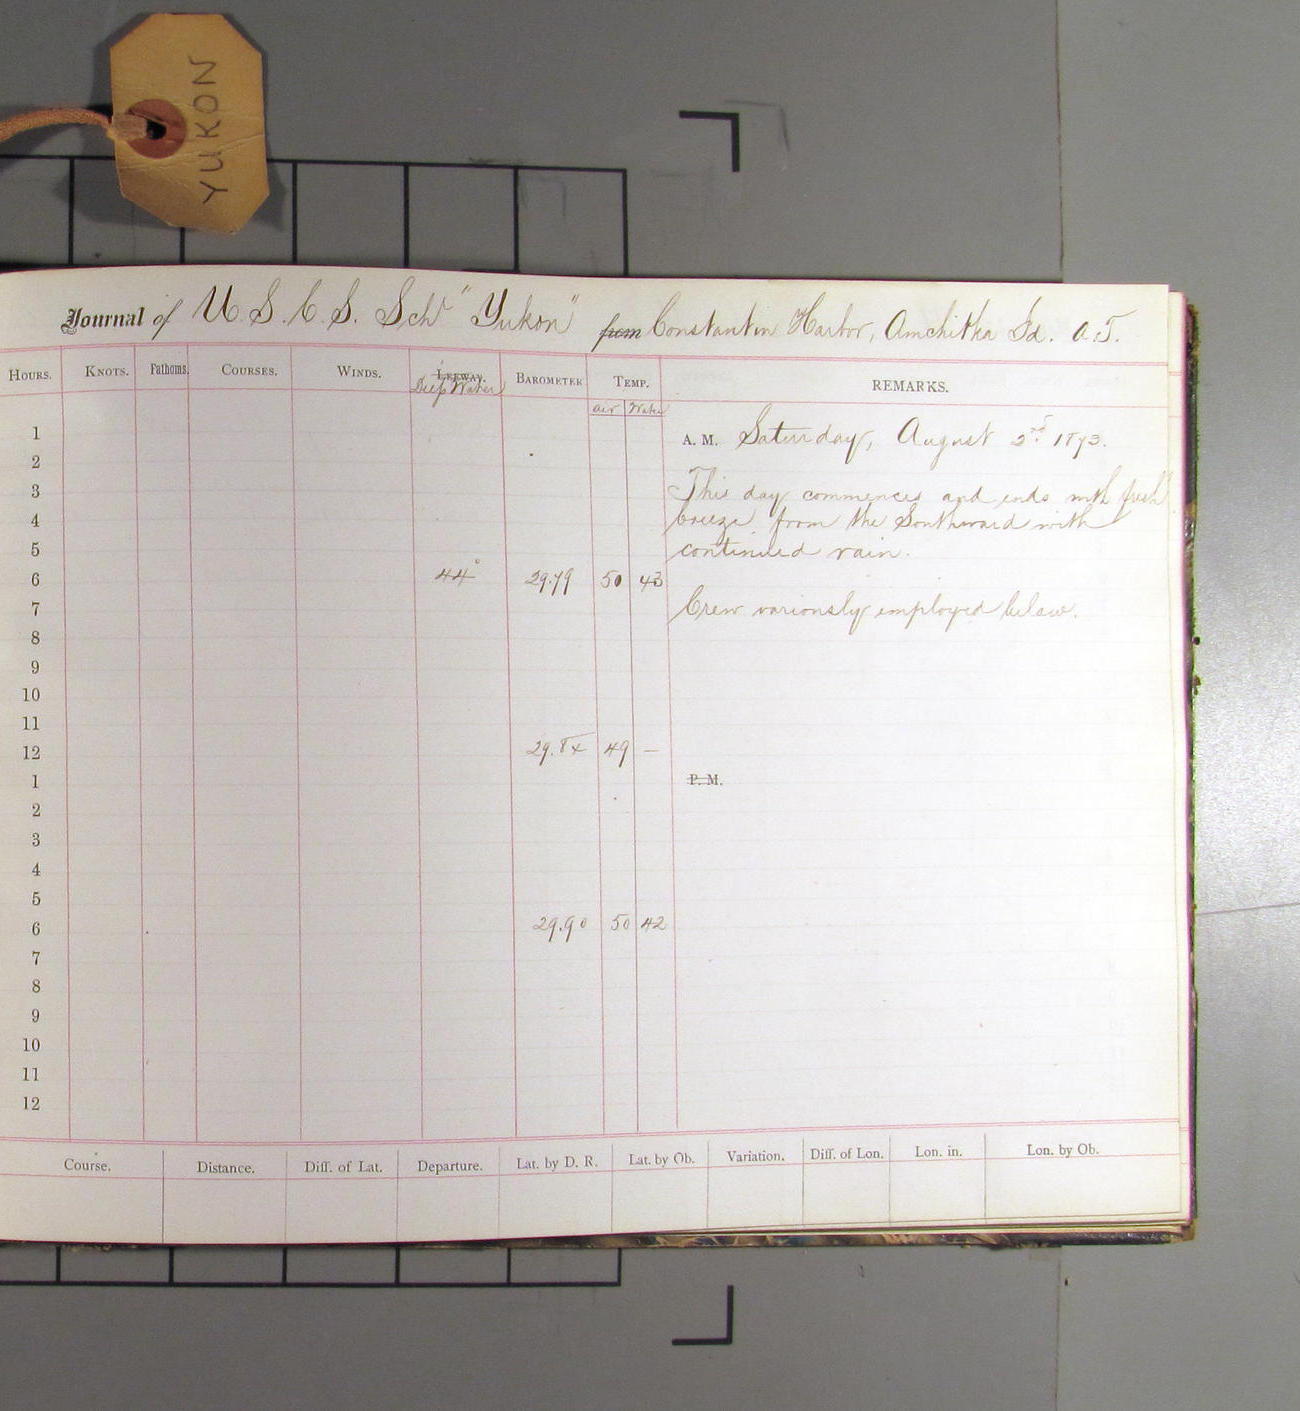 YUKON
Journal of U.S.C.S. Schr "Yukon" from Constantin Harbor, Amchitka Id. A.T.
HOURS. KNOTS. Fathoms. COURSES. WINDS. LEEWAY. BAROMETER TEMP. REMARKS.
Deep Water
air Water
1 A. M. Saturday, August 2nd 1873.
2
3 This day commences and ends with fresh
4 breeze from the Southward with
5 continued rain.
6 44° 29.79 50 43
7 Crew variously employed below.
8
9
10
11
12 29.84 49 —
1 P. M.
2
3
4
5
6 29.90 50 42
7
8
9
10
11
12
Course. Distance. Diff. of Lat. Departure. Lat. by D. R. Lat. by Ob. Variation. Diff. of Lon. Lon. in. Lon. by Ob.